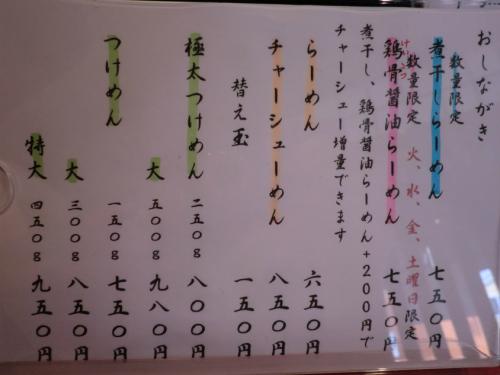 おしながき
数量限定
煮干しらーめん 七五〇円
数量限定 火、水、金、土曜日限定
鶏骨醤油らーめん 七五〇円
けいこつ
煮干し、鶏骨醤油らーめん+200円で
チャーシュー増量できます
らーめん 六五〇円
チャーシューめん 八五〇円
替え玉 一五〇円
極太つけめん 二五〇g 八〇〇円
大 五〇〇g 九八〇円
つけめん 一五〇g 七五〇円
大 三〇〇g 八五〇円
特大 四五〇g 九五〇円